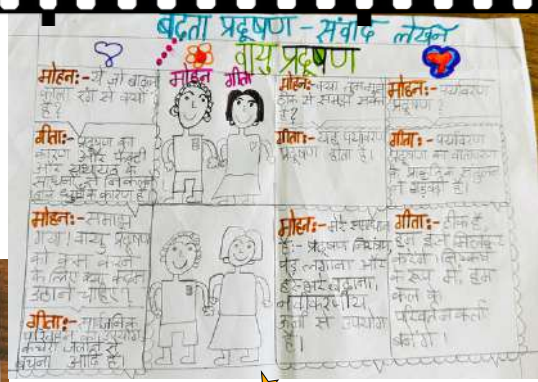 बढ़ता प्रदूषण – संवाद लेखन
वायु प्रदूषण
मोहन गीता
मोहन:- ये जो बादल
काला रंग से क्यों
है?
गीता:- प्रदूषण का
कारण और फैक्ट्री
और
से निकलने
कारण है
मोहन:- क्या तुम
ठीक से समझा सकते
है?
गीता:- यह पर्यावरण
प्रदूषण होता है।
मोहन:- पर्यावरण
प्रदूषण?
गीता:- पर्यावरण
प्रदूषण का वातावरण
के प्राकृतिक संतुलन
है।
मोहन:- समझ
गया। वायु प्रदूषण
को कम करने
के लिए क्या कदम
उठाने चाहिए?
गीता:- सार्वजनिक
परिवहन का उपयोग,
कचरा जलाने से
बचना आदि है।
मोहन:- मेरे
है:- प्रदूषण नियंत्रण
पेड़ लगाना और
नवीकरणीय
ऊर्जा से उपयोग
है।
गीता:- ठीक है
हम इसे मिलकर
करेंगे।
के रूप में, हम
कल के
परिवर्तनकर्ता
बनेंगे।